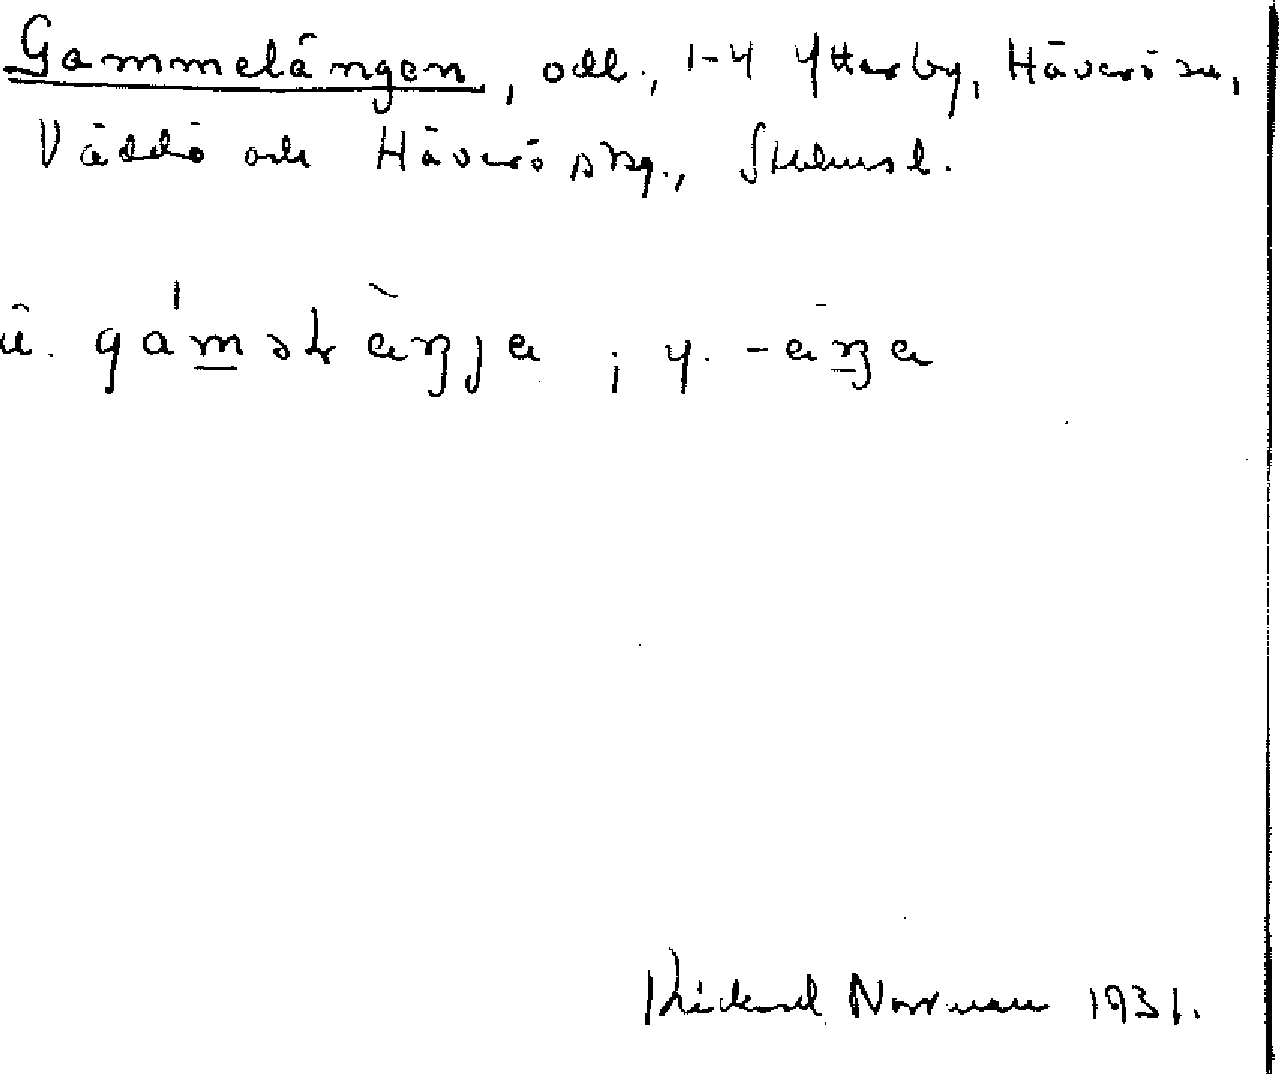 Gammelängen, odl., 1-4 Ytterby, Häverö sn,
Väddö och Häverö skg., Sthlms l.
ä. gám̲əɫ äŋja ; y. -äŋ̲a
Norrman 1931.